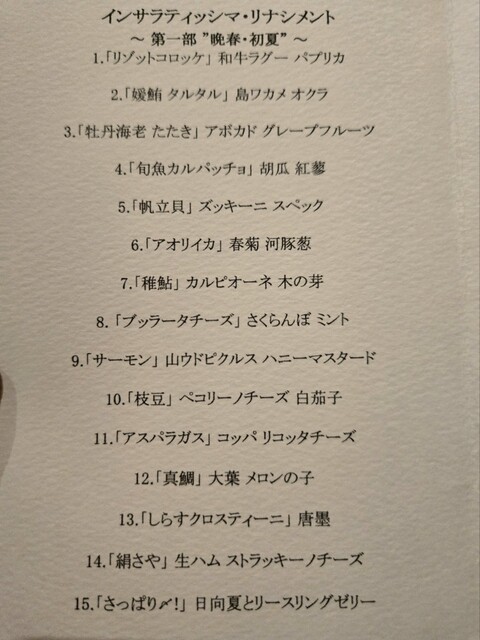 インサラティッシマ・リナシメント
～ 第一部 ”晩春・初夏” ～
1.「リゾットコロッケ」 和牛ラグー パプリカ
2.「媛鮪 タルタル」 島ワカメ オクラ
3.「牡丹海老 たたき」 アボカド グレープフルーツ
4.「旬魚カルパッチョ」 胡瓜 紅蓼
5.「帆立貝」 ズッキーニ スペック
6.「アオリイカ」 春菊 河豚葱
7.「稚鮎」 カルピオーネ 木の芽
8. 「ブッラータチーズ」 さくらんぼ ミント
9.「サーモン」 山ウドピクルス ハニーマスタード
10.「枝豆」 ペコリーノチーズ 白茄子
11.「アスパラガス」 コッパ リコッタチーズ
12.「真鯛」 大葉 メロンの子
13.「しらすクロスティーニ」 唐墨
14.「絹さや」 生ハム ストラッキーノチーズ
15.「さっぱり〆!」 日向夏とリースリングゼリー